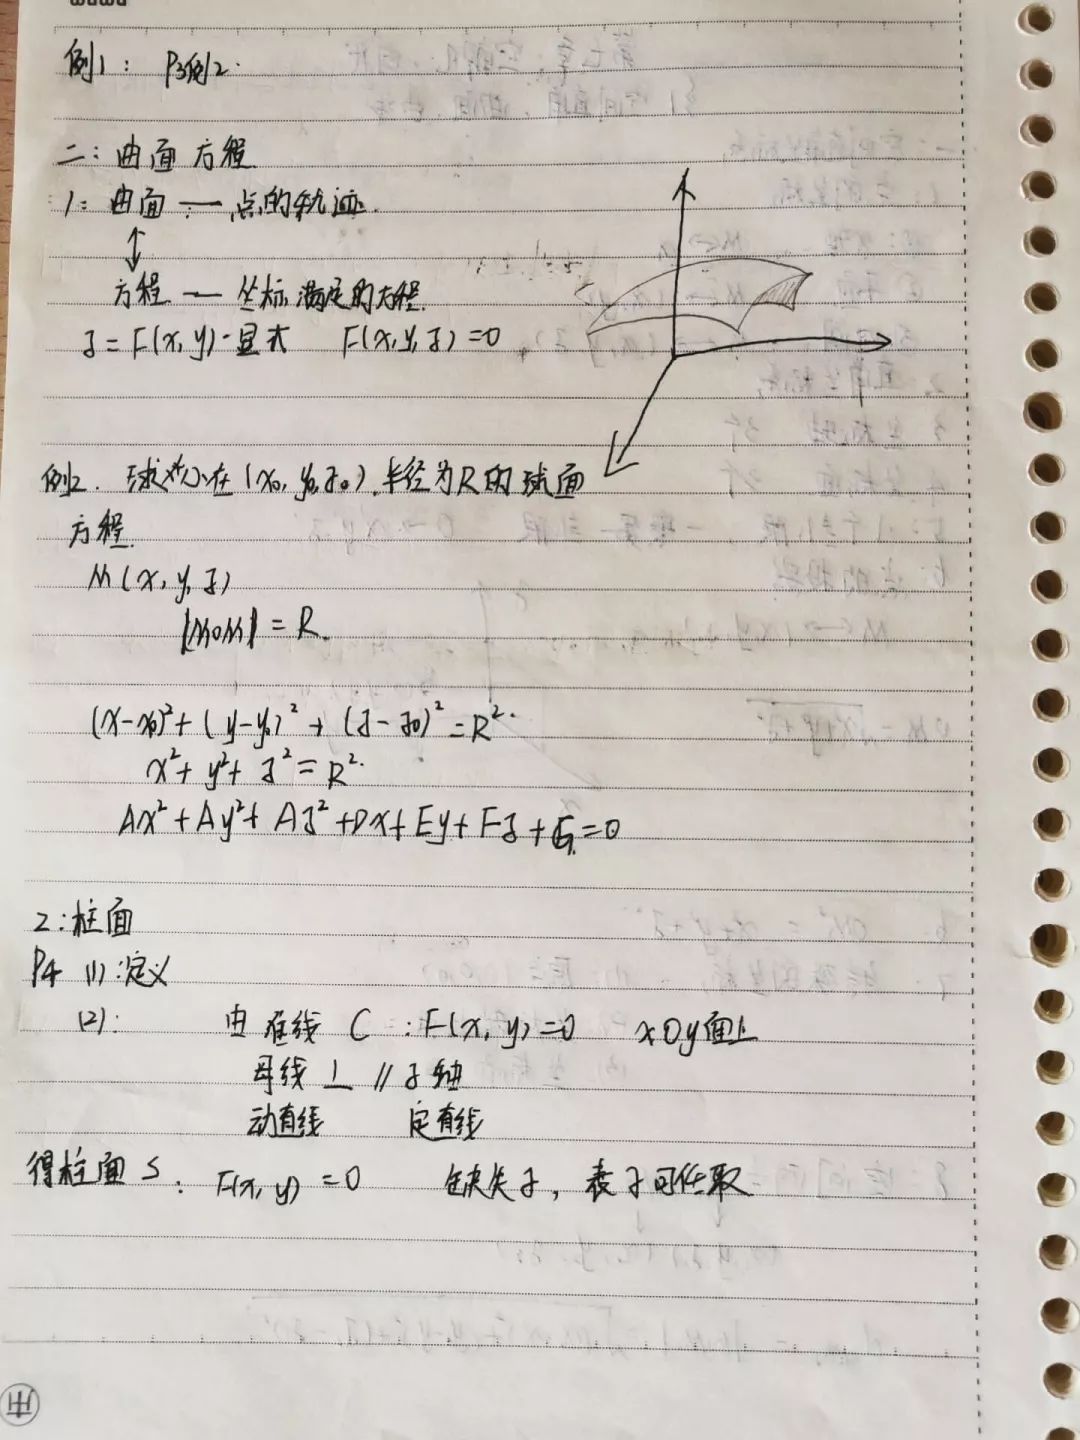 例1: P3例2.
二: 曲面方程
1: 曲面 — 点的轨迹.
↕
方程 — 坐标满足的方程.
z = F(x, y) · 显式 F(x, y, z) = 0
例2. 球心在 (x₀, y₀, z₀), 半径为R的球面
方程.
M(x, y, z)
|M₀M| = R.
(x-x₀)² + (y-y₀)² + (z-z₀)² = R².
x² + y² + z² = R².
Ax² + Ay² + Az² + Dx + Ey + Fz + G = 0
2: 柱面
P4 (1): 定义
(2): 由准线 C : F(x, y) = 0 xOy面上
母线 L // z轴
动直线 定直线
得柱面 S: F(x, y) = 0 缺失z, 表z可任取
用